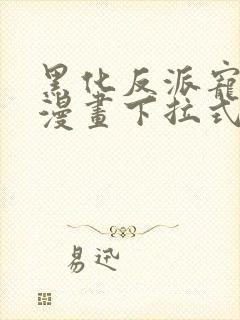 黑化反派寵
漫畫下拉式
易迅